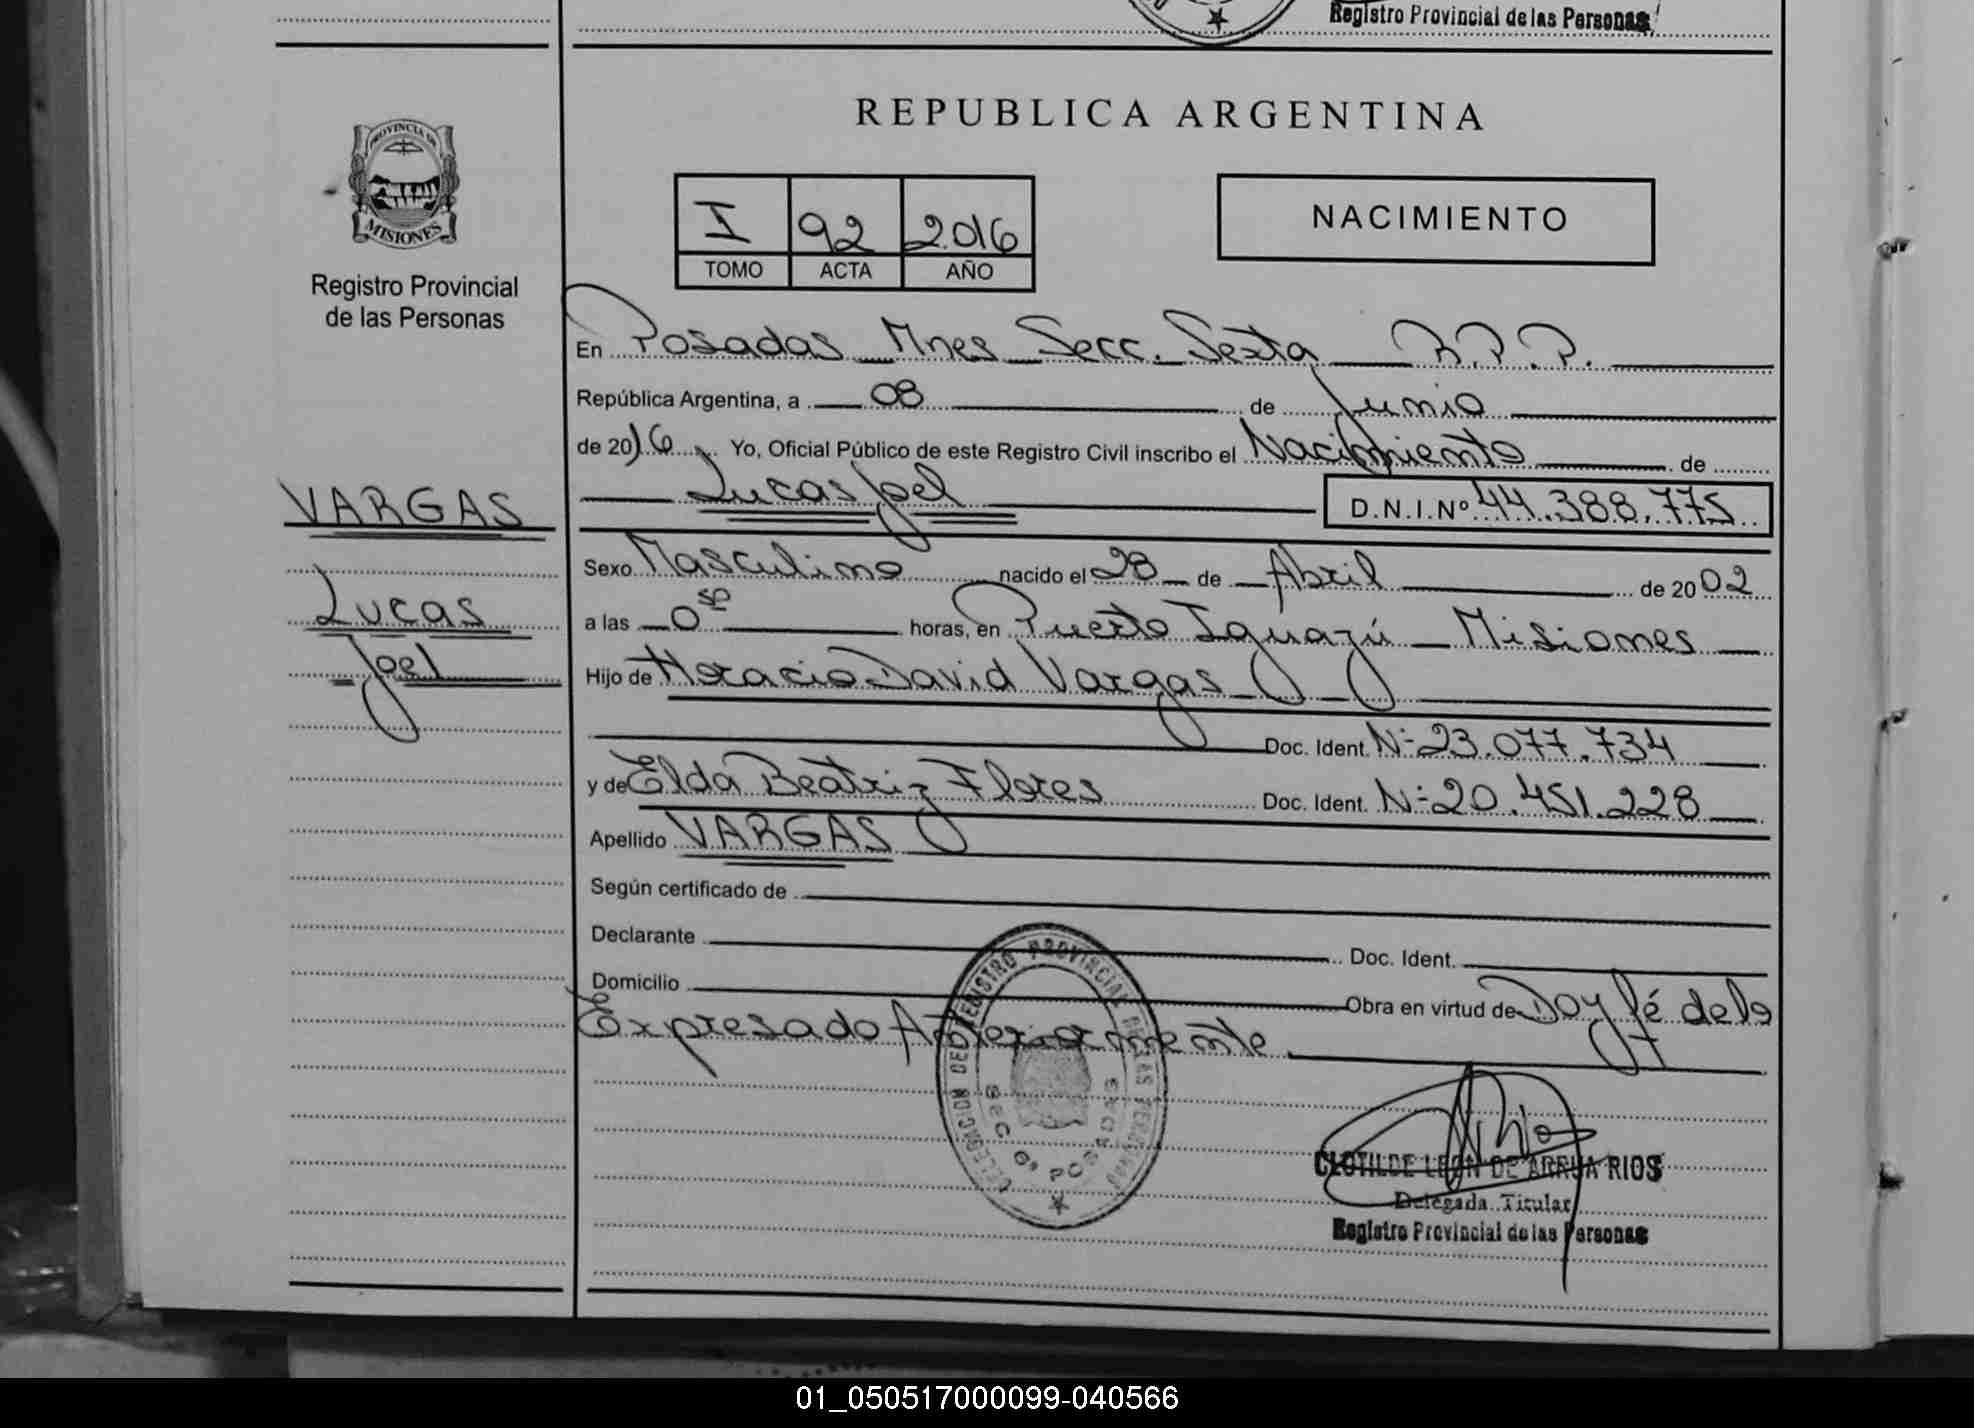 Registro Provincial de las Personas
PROVINCIA DE
MISIONES
Registro Provincial
de las Personas
VARGAS
Lucas
Joel
REPUBLICA ARGENTINA
I 92 2016
TOMO ACTA AÑO
NACIMIENTO
En Posadas Mnes Secc. Sexta R.P.P.
República Argentina, a 08 de Junio
de 2016 Yo, Oficial Público de este Registro Civil inscribo el Nacimiento de
Lucas Joel D.N.I.Nº 44.388.775
Sexo Masculino nacido el 28 de Abril de 2002
a las 0 horas, en Puerto Iguazú Misiones
Hijo de Horacio David Vargas
Doc. Ident. Nº 23.077.734
y de Elda Beatriz Flores Doc. Ident. Nº 20.451.228
Apellido VARGAS
Según certificado de
Declarante Doc. Ident.
Domicilio Obra en virtud de Doy fé de lo
Expresado Anteriormente
DELEGACION DEL REGISTRO PROVINCIAL DE LAS PERSONAS
SECC. 6ª POSADAS
CLOTILDE LEON DE ARRUA RIOS
Delegada Titular
Registro Provincial de las Personas
01_050517000099-040566